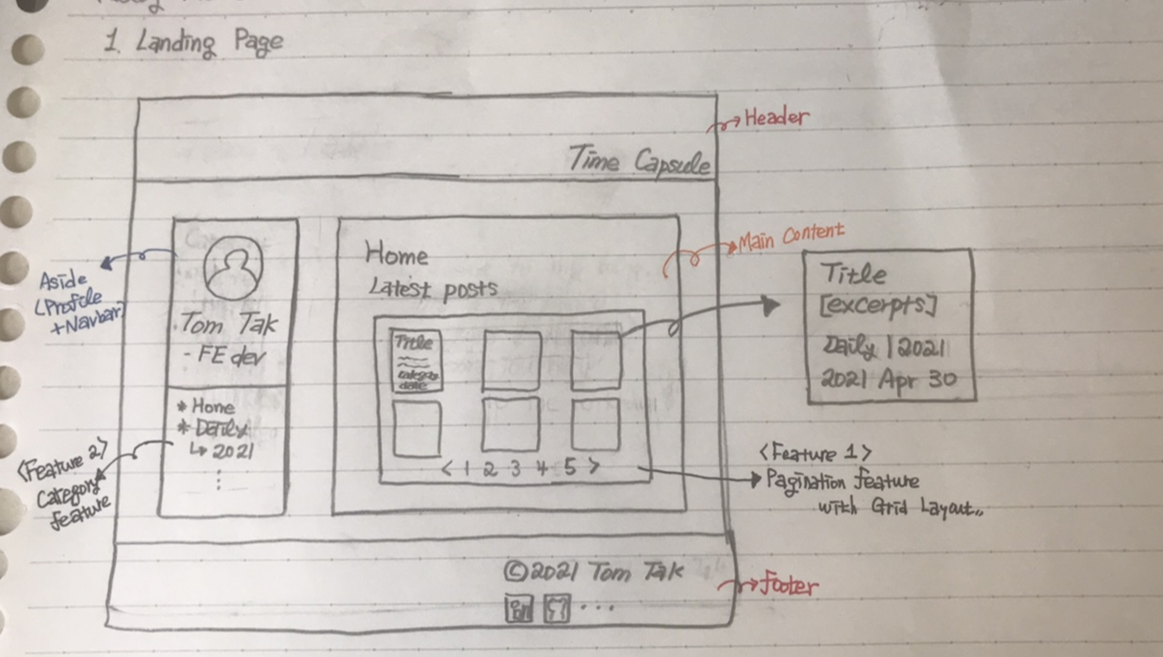 1. Landing Page
Header
Time Capsule
Aside
(Profile
+Navbar)
Tom Tak
- FE dev
* Home
* Daily
↳ 2021
<Feature 2>
Category
feature
Main Content
Home
Latest posts
Title
category
date
< 1 2 3 4 5 >
Title
[excerpts]
Daily | 2021
2021 Apr 30
<Feature 1>
Pagination feature
with Grid Layout..
© 2021 Tom Tak
...
footer